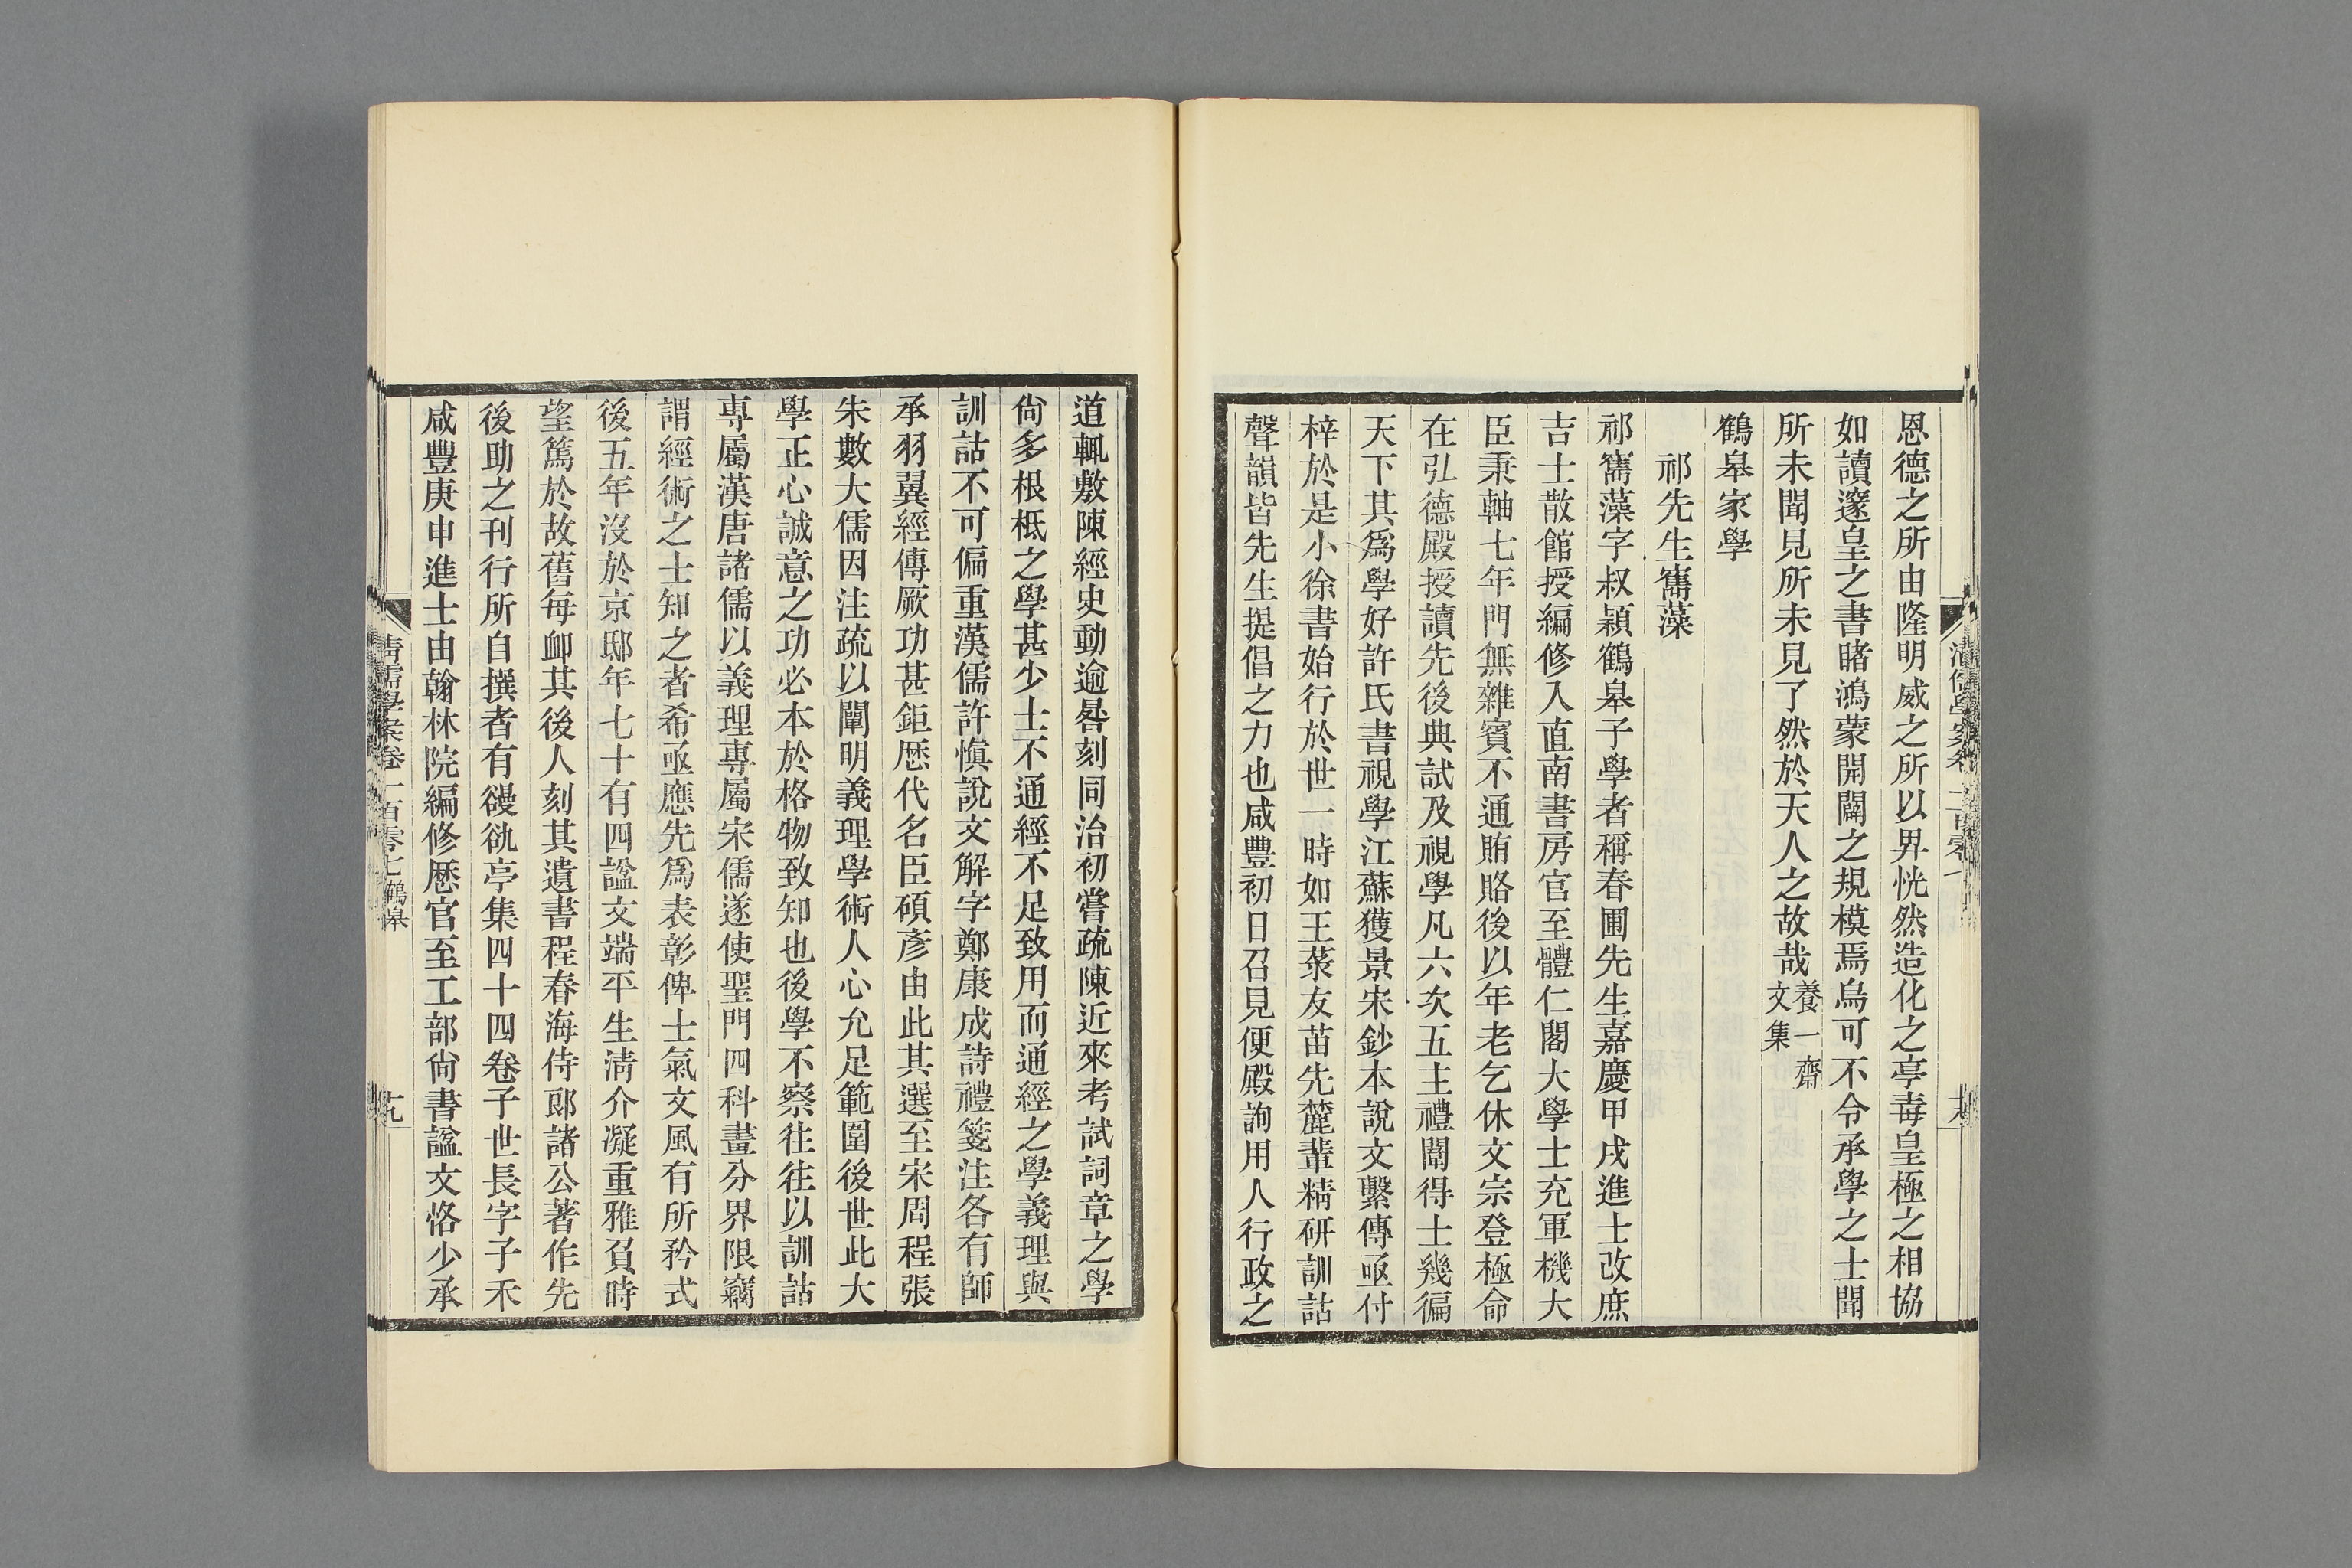 恩德之所由隆明威之所以畀恍然造化之亭毒皇極之相協
如讀邃皇之書睹鴻蒙開闢之規模焉烏可不令承學之士聞
所未聞見所未見了然於天人之故哉養一齋
文集
鶴皋家學
祁先生寯藻
祁寯藻字叔穎鶴皋子學者稱春圃先生嘉慶甲戌進士改庶
吉士散館授編修入直南書房官至體仁閣大學士充軍機大
臣秉軸七年門無雜賓不通賄賂後以年老乞休文宗登極命
在弘德殿授讀先後典試及視學凡六次五主禮闈得士幾徧
天下其爲學好許氏書視學江蘇獲景宋鈔本說文繫傳亟付
梓於是小徐書始行於世一時如王菉友苗先麓輩精研訓詁
聲韻皆先生提倡之力也咸豐初日召見便殿詢用人行政之
道輒敷陳經史動逾晷刻同治初嘗疏陳近來考試詞章之學
尙多根柢之學甚少士不通經不足致用而通經之學義理與
訓詁不可偏重漢儒許愼說文解字鄭康成詩禮箋注各有師
承羽翼經傳厥功甚鉅歷代名臣碩彥由此其選至宋周程張
朱數大儒因注疏以闡明義理學術人心允足範圍後世此大
學正心誠意之功必本於格物致知也後學不察往往以訓詁
專屬漢唐諸儒以義理專屬宋儒遂使聖門四科畫分界限竊
謂經術之士知之者希亟應先爲表彰俾士氣文風有所矜式
後五年沒於京邸年七十有四諡文端平生淸介凝重雅負時
望篤於故舊每卹其後人刻其遺書程春海侍郞諸公著作先
後助之刊行所自撰者有䜱䜪亭集四十四卷子世長字子禾
咸豐庚申進士由翰林院編修歷官至工部尙書諡文恪少承
清儒學案卷一百零七 鶴皋
十九